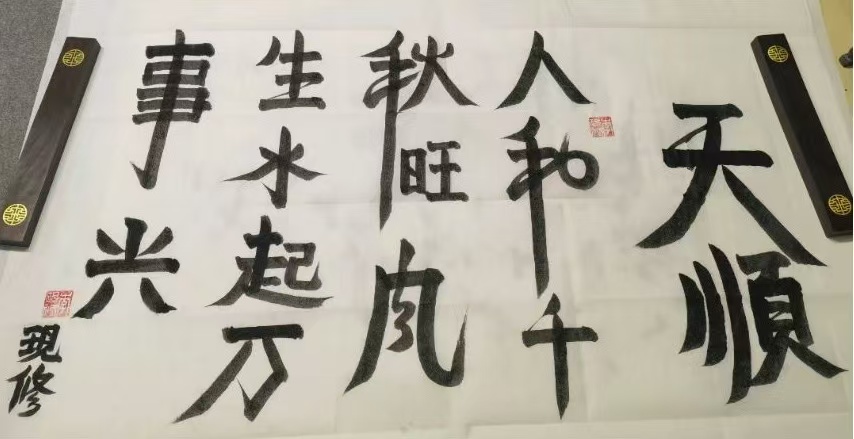 天順
人和千
秋旺风
生水起万
事兴
現修